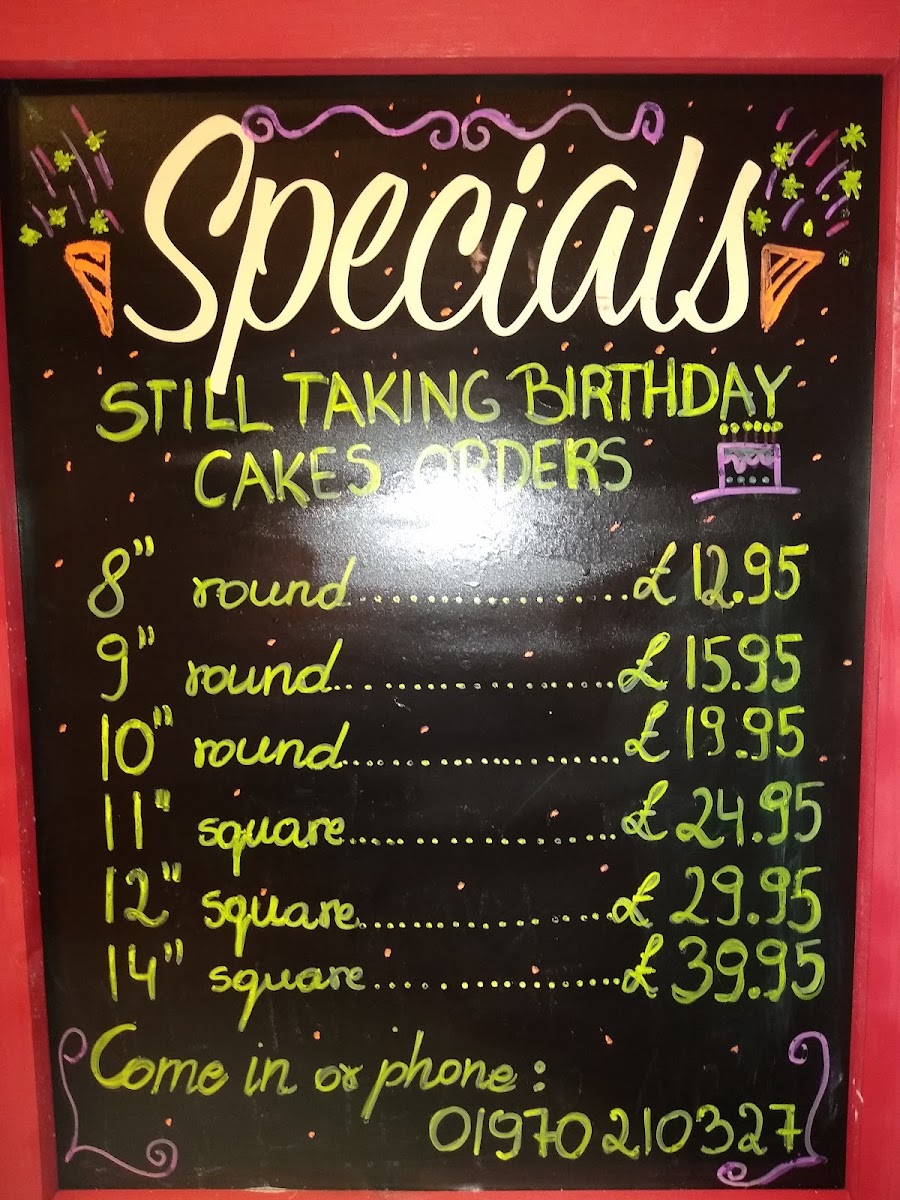 Specials
STILL TAKING BIRTHDAY
CAKES ORDERS
8" round..................£ 12.95
9" round..................£ 15.95
10" round..................£ 19.95
11" square..................£ 24.95
12" square..................£ 29.95
14" square..................£ 39.95
Come in or phone :
01970 210327